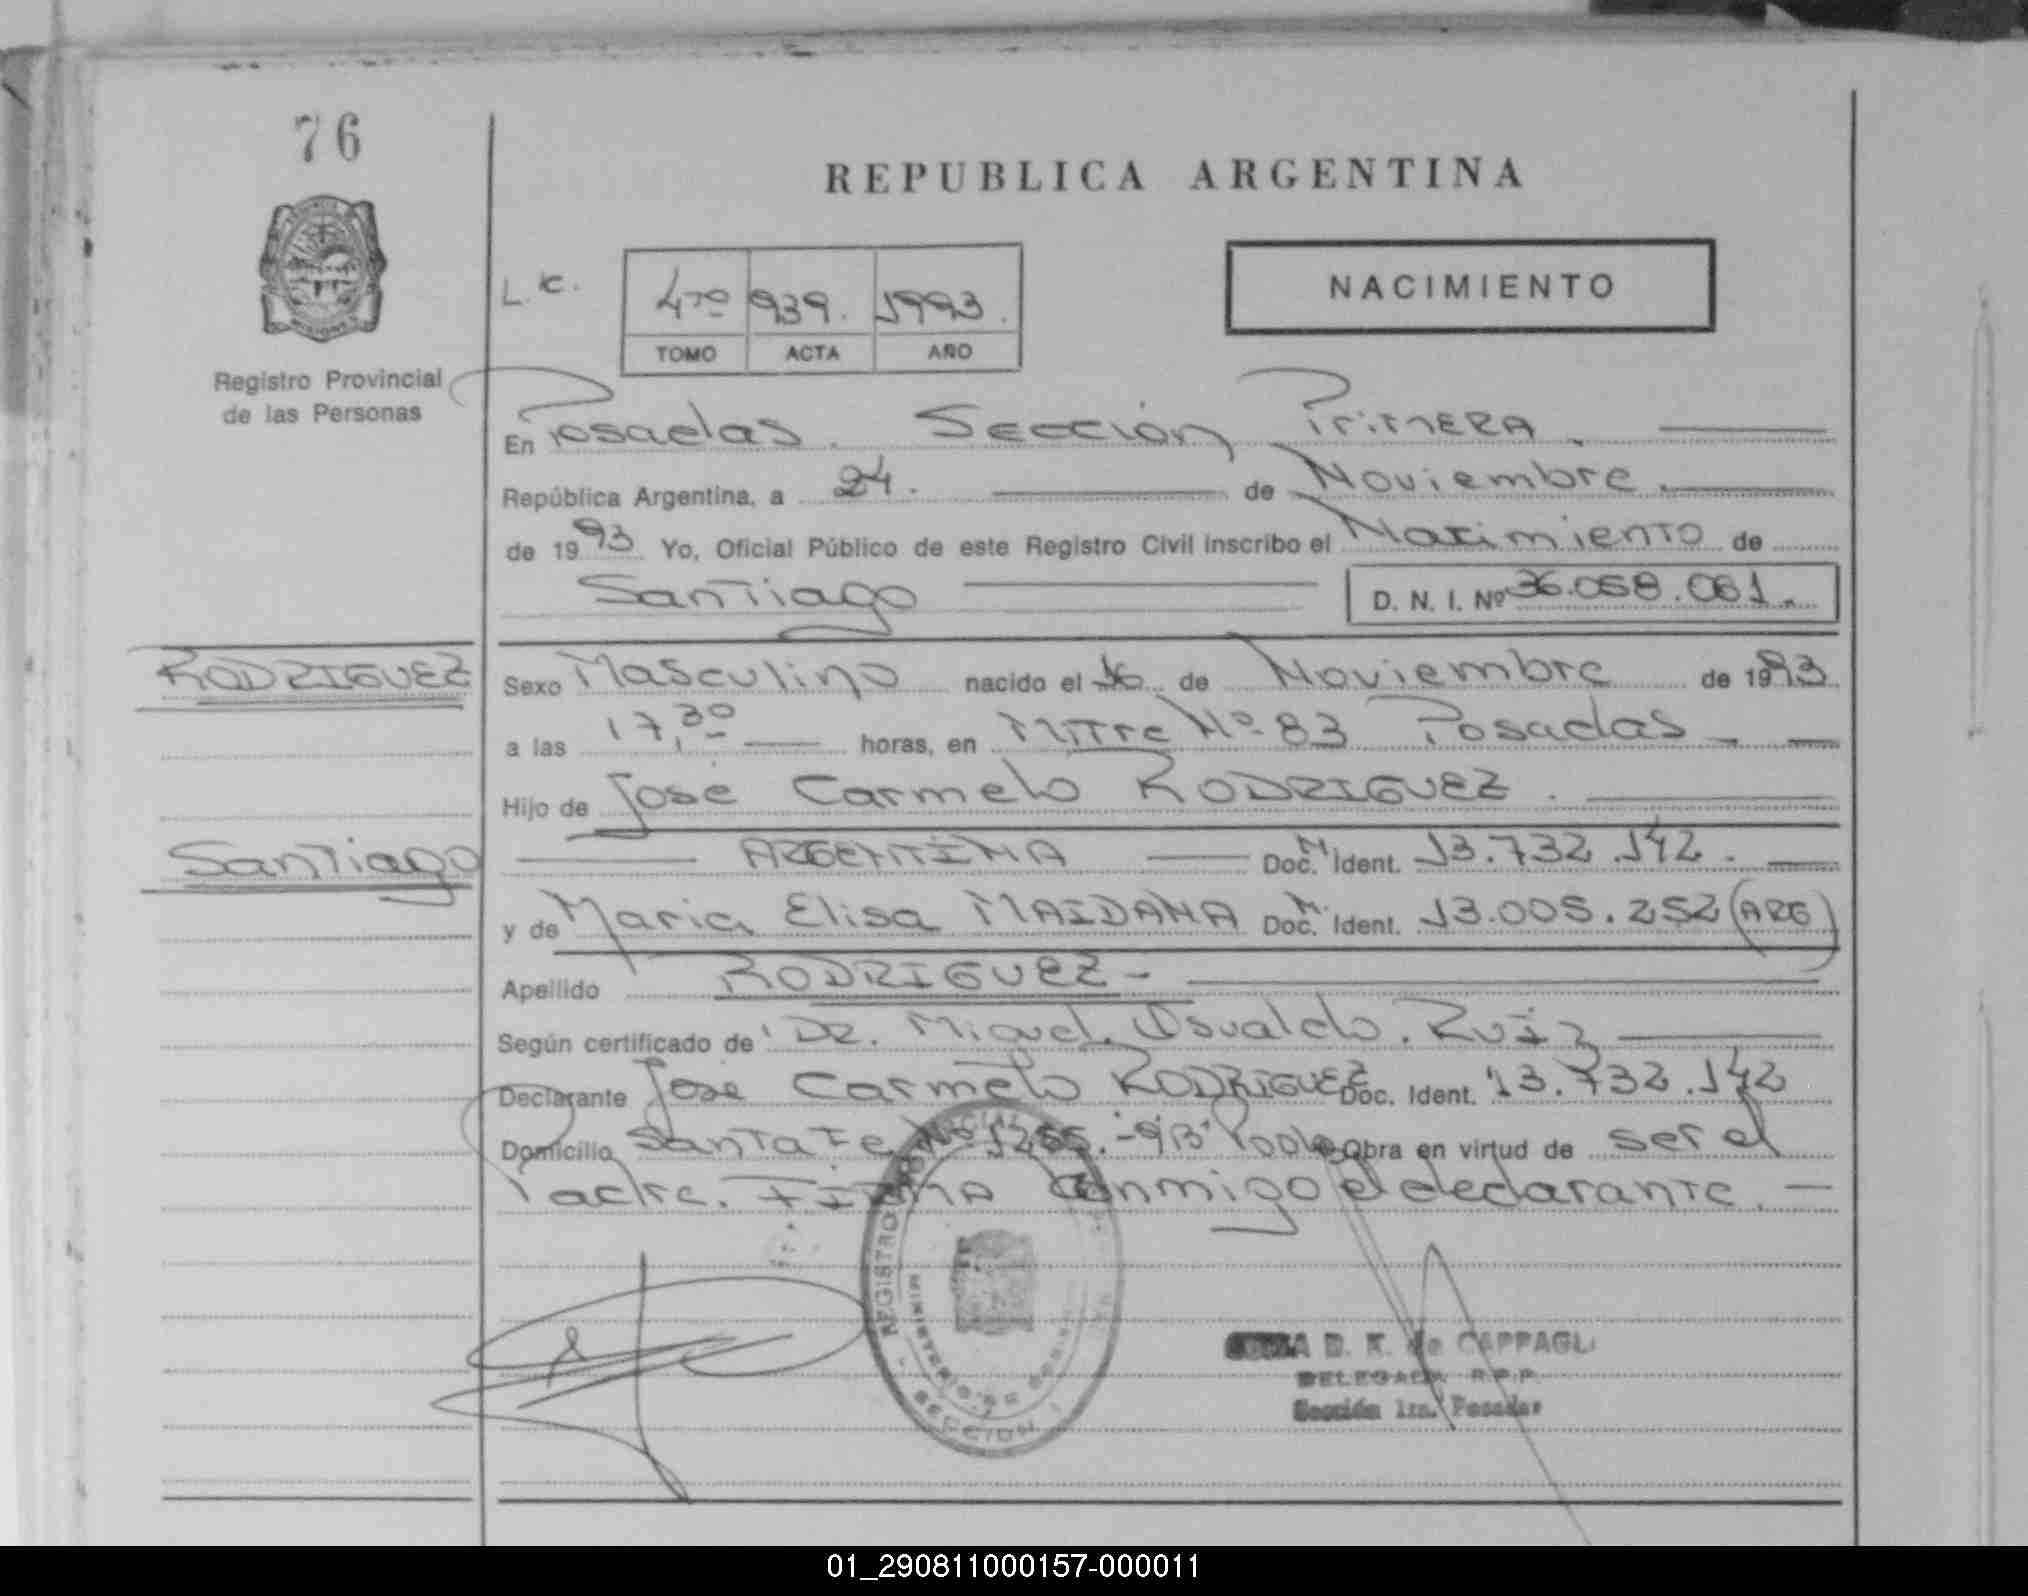 76
REPUBLICA ARGENTINA
L. C.
4to 939. 1993.
TOMO ACTA AÑO
NACIMIENTO
Registro Provincial
de las Personas
En Posadas. Sección Primera.
República Argentina, a 24. de Noviembre.
de 1993 Yo, Oficial Público de este Registro Civil inscribo el Nacimiento de
Santiago D. N. I. Nº 36.058.061.
RODRIGUEZ
Santiago
Sexo Masculino nacido el 16 de Noviembre de 1993
a las 17,30 horas, en Mitre Nº 83 Posadas -
Hijo de José Carmelo RODRIGUEZ.
ARGENTINA Doc. M. Ident. 13.732.142.
y de Maria Elisa MAIDANA Doc. M. Ident. 13.005.252 (ARG)
Apellido RODRIGUEZ-
Según certificado de DR. Miguel Osvaldo. Ruiz
Declarante José Carmelo RODRIGUEZ Doc. Ident. 13.732.142
Domicilio Santa Fe Nº Obra en virtud de ser el
Padre. FIRMA conmigo el declarante. -
REGISTRO
MINISTERIO DE
SECCION 1
D. K. de CAPPAGLI
DELEGADA R.P.P.
Sección 1ra. Posadas
01_290811000157-000011